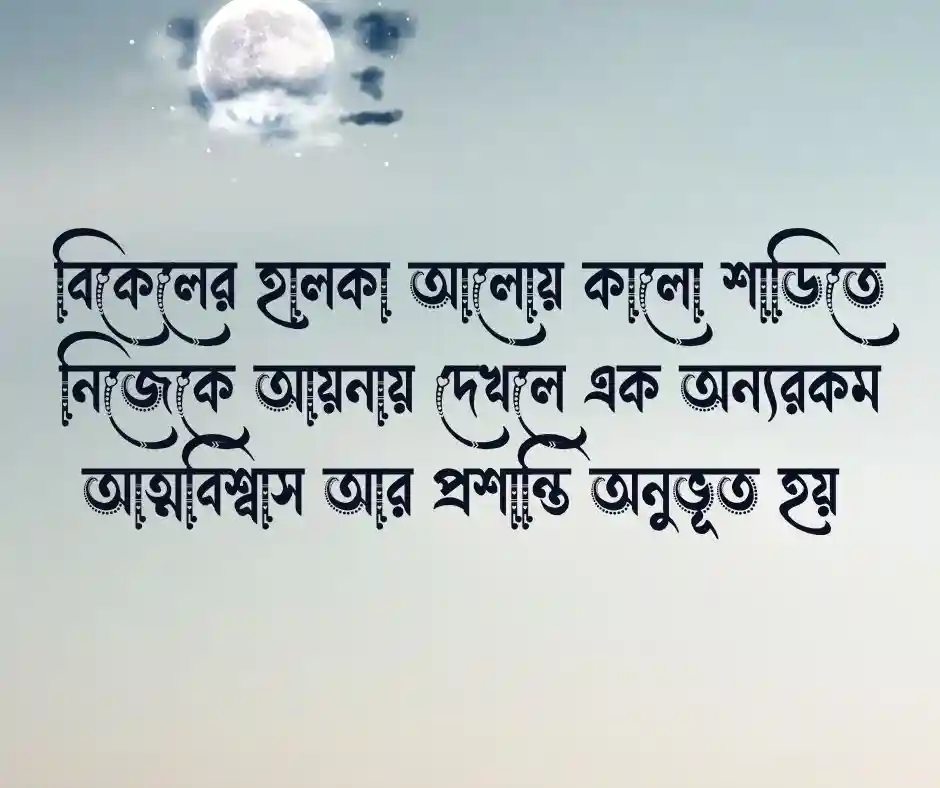 বিকেলের হালকা আলোয় কালো শাড়িতে
নিজেকে আয়নায় দেখলে এক অন্যরকম
আত্মবিশ্বাস আর প্রশান্তি অনুভূত হয়